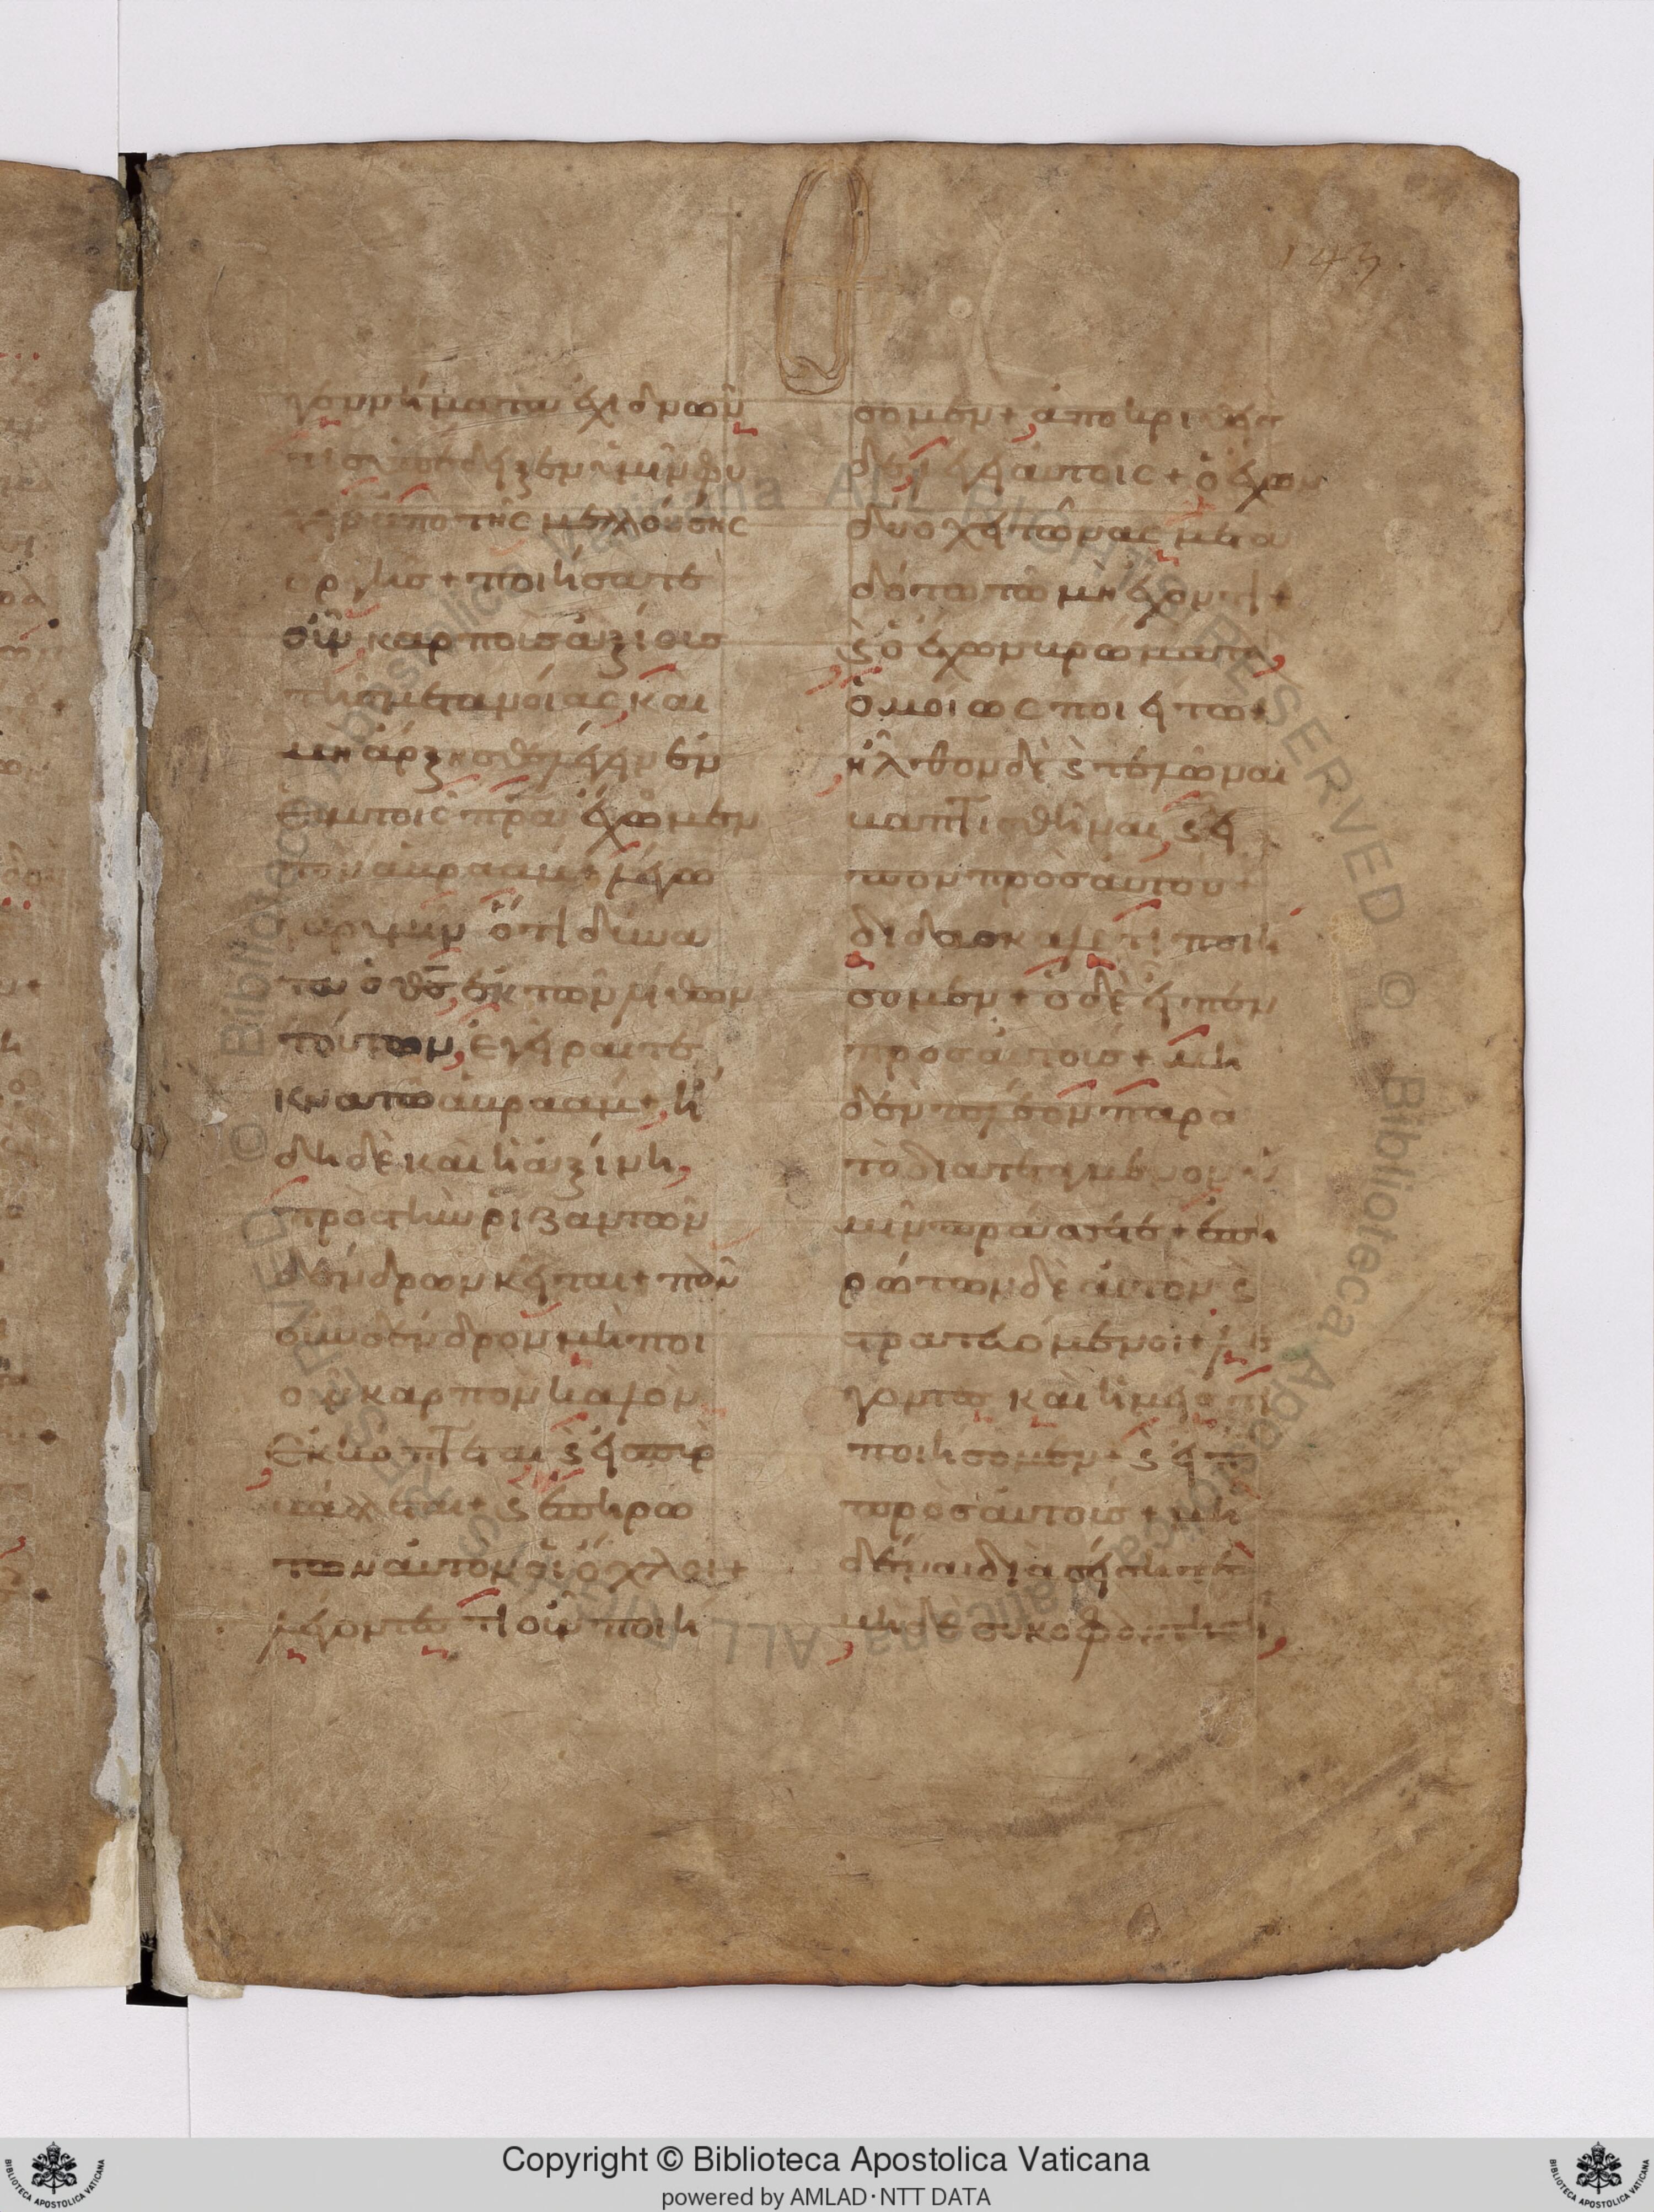 143.
γεννήματα ἐχιδνῶν
τίς ὑπέδηξεν ὑμῖν φυ
γεῖν ἀπὸ τῆς μελλούσης
ὀργῆς + ποιήσατε
οὖν καρποὺς ἀξίους
τῆς μετανοίας, καὶ
μὴ ἄρξησθε λέγειν ἐν
ἑαυτοῖς πρα ἔχωμεν
τὸν ἀβραάμ + λέγω
γὰρ ὑμῖν ὅτι δύνα
ται ὁ θς, ἐκ τῶν λίθων
τούτων, ἐγεῖραι τέ
κνα τῶ ἀβραάμ + ἤ
δη δὲ καὶ ἡ ἀξίνη,
πρὸς τὴν ρίζαν τῶν
δένδρων κεῖται + πᾶν
οὖν δένδρον μὴ ποι
οῦν καρπὸν καλὸν
ἐκκόπτεται ϛ εἰς πῦρ
βάλλεται + ϛ ἐπηρώ
των αὐτὸν οἱ ὄχλοι +
λέγοντες τί οὖν ποιή
σομεν + ἀποκριθεὶς
δὲ λέγει αὐτοῖς + ὁ ἔχων
δύο χειτῶνας μετα
δότω τῶ μὴ ἔχοντι +
ϛ ὁ ἔχων βρώματα,
ὁμοίως ποιείτω +
ἦλθον δὲ ϛ τελῶναι
βαπτισθῆναι, ϛ εἶ
πον πρὸς αὐτόν +
διδάσκαλε τί ποιή
σομεν + ὁ δὲ εἶπεν
πρὸς αὐτούς + μη
δὲν πλέον παρὰ
τὸ διατεταγμένον ὑ
μῖν πράσσετε + ἐπη
ρώτων δὲ αὐτὸν ϛ
στρατευόμενοι + λέ
γοντες καὶ ἡμεῖς τί
ποιήσομεν + ϛ εἶπε
πρὸς αὐτούς + μη
δένα διασείσητε
μηδὲ συκοφαντήση,